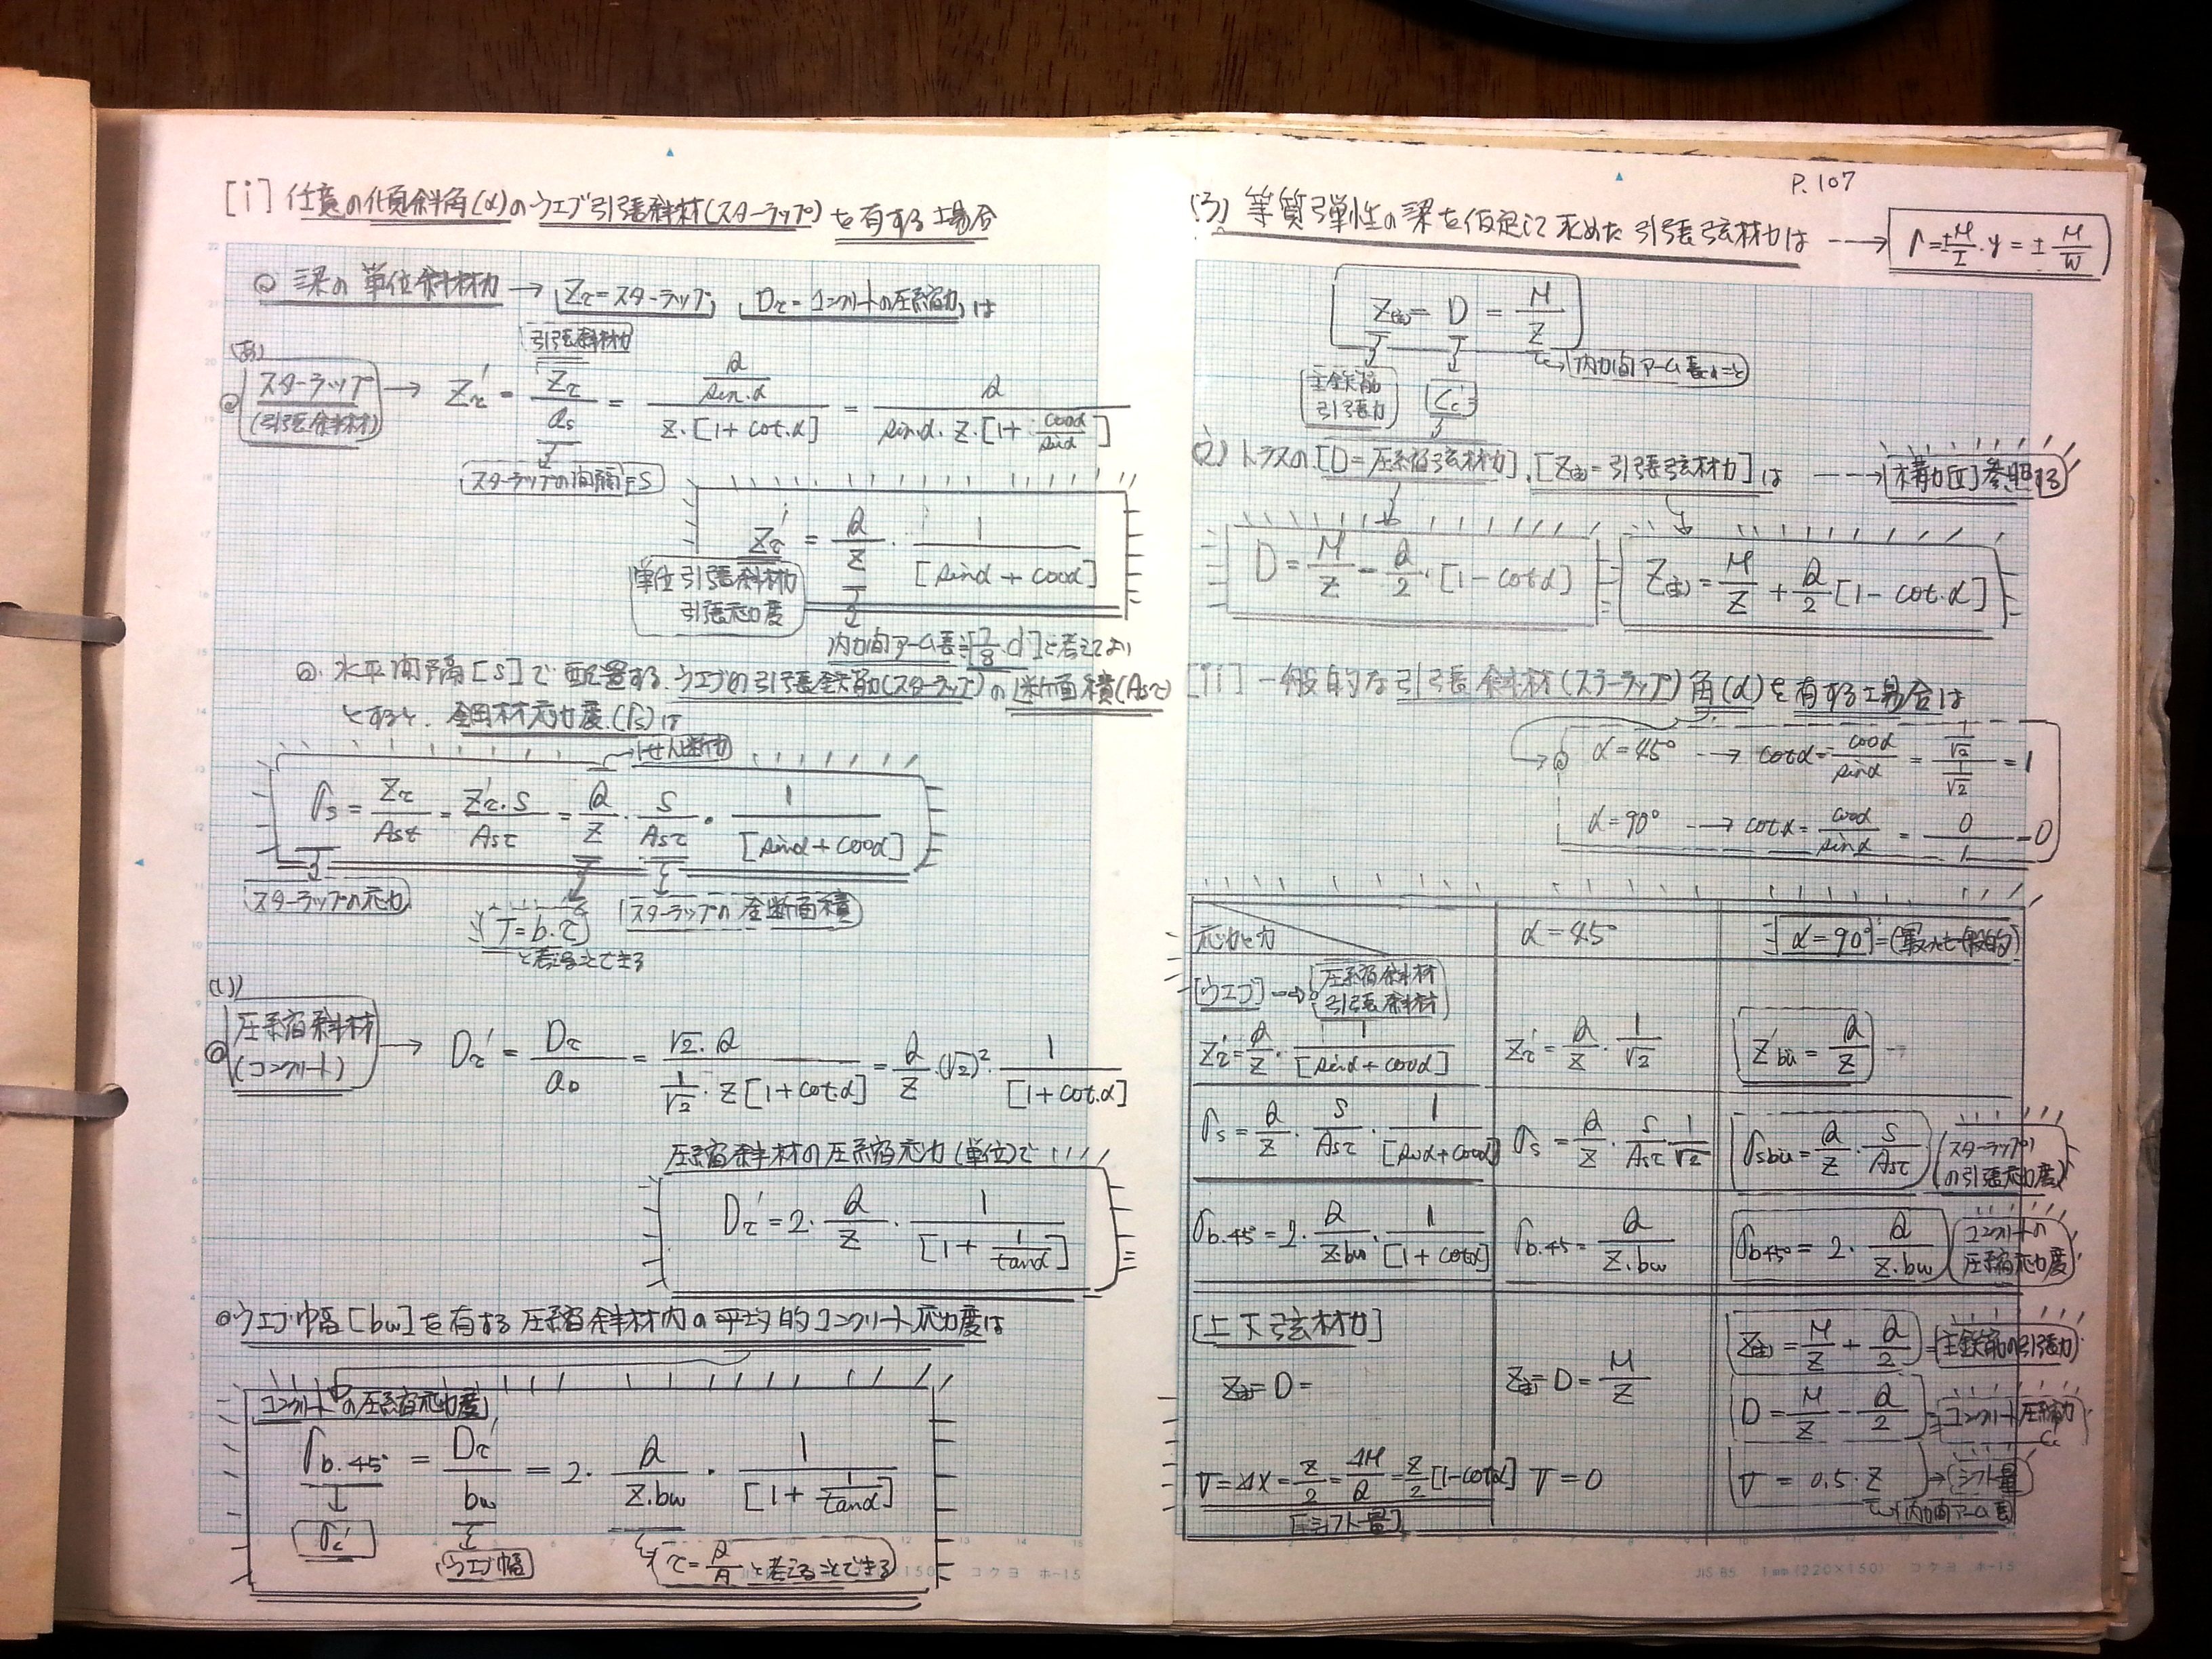 [i] 任意の傾斜角(α)のウエブ引張斜材(スターラップ)を有する場合
梁の単位斜材力 → Zτ=スターラップ, Dτ=コンクリートの圧縮力は
(あ)
引張斜材力
スターラップ (引張斜材) → Zτ' = Zτ/as = (Q/sin.α)/(Z.[1+cot.α]) = Q/(sin.α. Z.[1+cosα/sinα])
スターラップの間隔=S
Zτ' = Q/Z . 1/[sinα+cosα]
単位引張斜材力
引張応力度
内力間アーム長≒[7/8.d]と考えてよい
水平間隔[S]で配置する、ウエブの引張鉄筋(スターラップ)の断面積(Asτ)
とすると、鋼材応力度(σs)は
せん断力
σs = Zτ/Asτ = Zτ'.S/Asτ = Q/Z . S/Asτ . 1/[sinα+cosα]
スターラップの応力
スターラップの全断面積
T=b.τ
と考えることできる
(い)
圧縮斜材 (コンクリート) → Dτ' = Dτ/aD = √2.Q/(1/√2 . Z[1+cot.α]) = Q/Z .(√2)². 1/[1+cot.α]
圧縮斜材の圧縮応力(単位)で
Dτ' = 2. Q/Z . 1/[1+1/tanα]
ウエブ巾[bw]を有する圧縮斜材内の平均的コンクリート応力度は
コンクリートの圧縮応力度
σb.45° = Dτ'/bw = 2. Q/Z.bw . 1/[1+1/tanα]
σc'
ウエブ幅
τ=Q/A と考えることできる
P.107
(う) 等質弾性の梁を仮定して求めた引張弦材力は → σ=±M/I.y=±M/W
Z(主)= D = M/Z
内力間アーム長のこと
主鉄筋
引張力
Cc'
(え) トラスの[D=圧縮弦材力],[Z主=引張弦材力]は → 構力[Ⅱ]参照する
D=M/Z−Q/2.[1−cotα]
Z(主)=M/Z+Q/2[1−cot.α]
[ii] 一般的な引張斜材(スターラップ)角(α)を有する場合は
α=45° → cotα=cosα/sinα=(1/√2)/(1/√2)=1
α=90° → cot.α=cosα/sinα=0/1=0
応力と力
α=45°
α=90°=(最も一般的)
[ウエブ] → 圧縮斜材
引張斜材
Zτ'=Q/Z . 1/[sinα+cosα]
Zτ'=Q/Z . 1/√2
Z'bü=Q/Z
σs=Q/Z . S/Asτ . 1/[sinα+cosα]
σs=Q/Z . S/Asτ . 1/√2
σsbü=Q/Z . S/Asτ
(スターラップの引張応力度)
σb.45°=2. Q/Z.bw . 1/[1+cotα]
σb.45=Q/Z.bw
σb45°=2. Q/Z.bw
コンクリートの圧縮応力度
[上下弦材力]
Z主=D=
Z主=D=M/Z
Z(主)=M/Z+Q/2 =(主鉄筋の引張力)
D=M/Z−Q/2 = コンクリート圧縮力 Cc
V=ΔX=Z/2=ΔM/Q=Z/2[1−cotα]
V=0
V=0.5.Z → (シフト量)
[シフト量]
(内力間アーム長)
JIS B5 1mm(220×150) コクヨ ホ-15